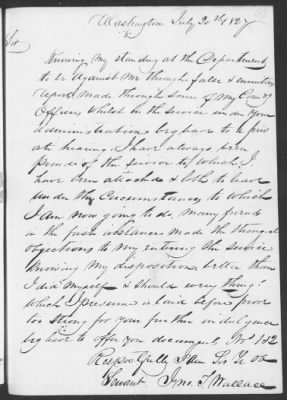 Washington July 20th 1827
Sir
Knowing my standing at the Department
to be against me through false &
reports made through some of my Comdg
Officers whilst in the service under your
administration beg have to a priv
ate hearing. I have always been
proud of the service to which I
have been attached & loth to leave
under the circumstances to which
I am now going to do, many friends
in the first instance made the strongest
objections to my entering the service
knowing my disposition better than
I did myself & should every thing
which I presume is laid before prove
too strong for your further indulgence
beg have to offer you documents No 1 & 2
Respectfully I am Sir Yr Ob
Servant Jno. T. Wallace